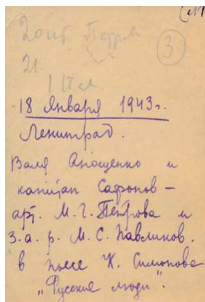 3
18 января 1943г.
Ленинград.
Валя Анощенко и
капитан Сафонов –
арт. М. Г. Петрова и
з.а.р. М. С. Павликов.
в пьесе К. Симонова
"Русские люди".